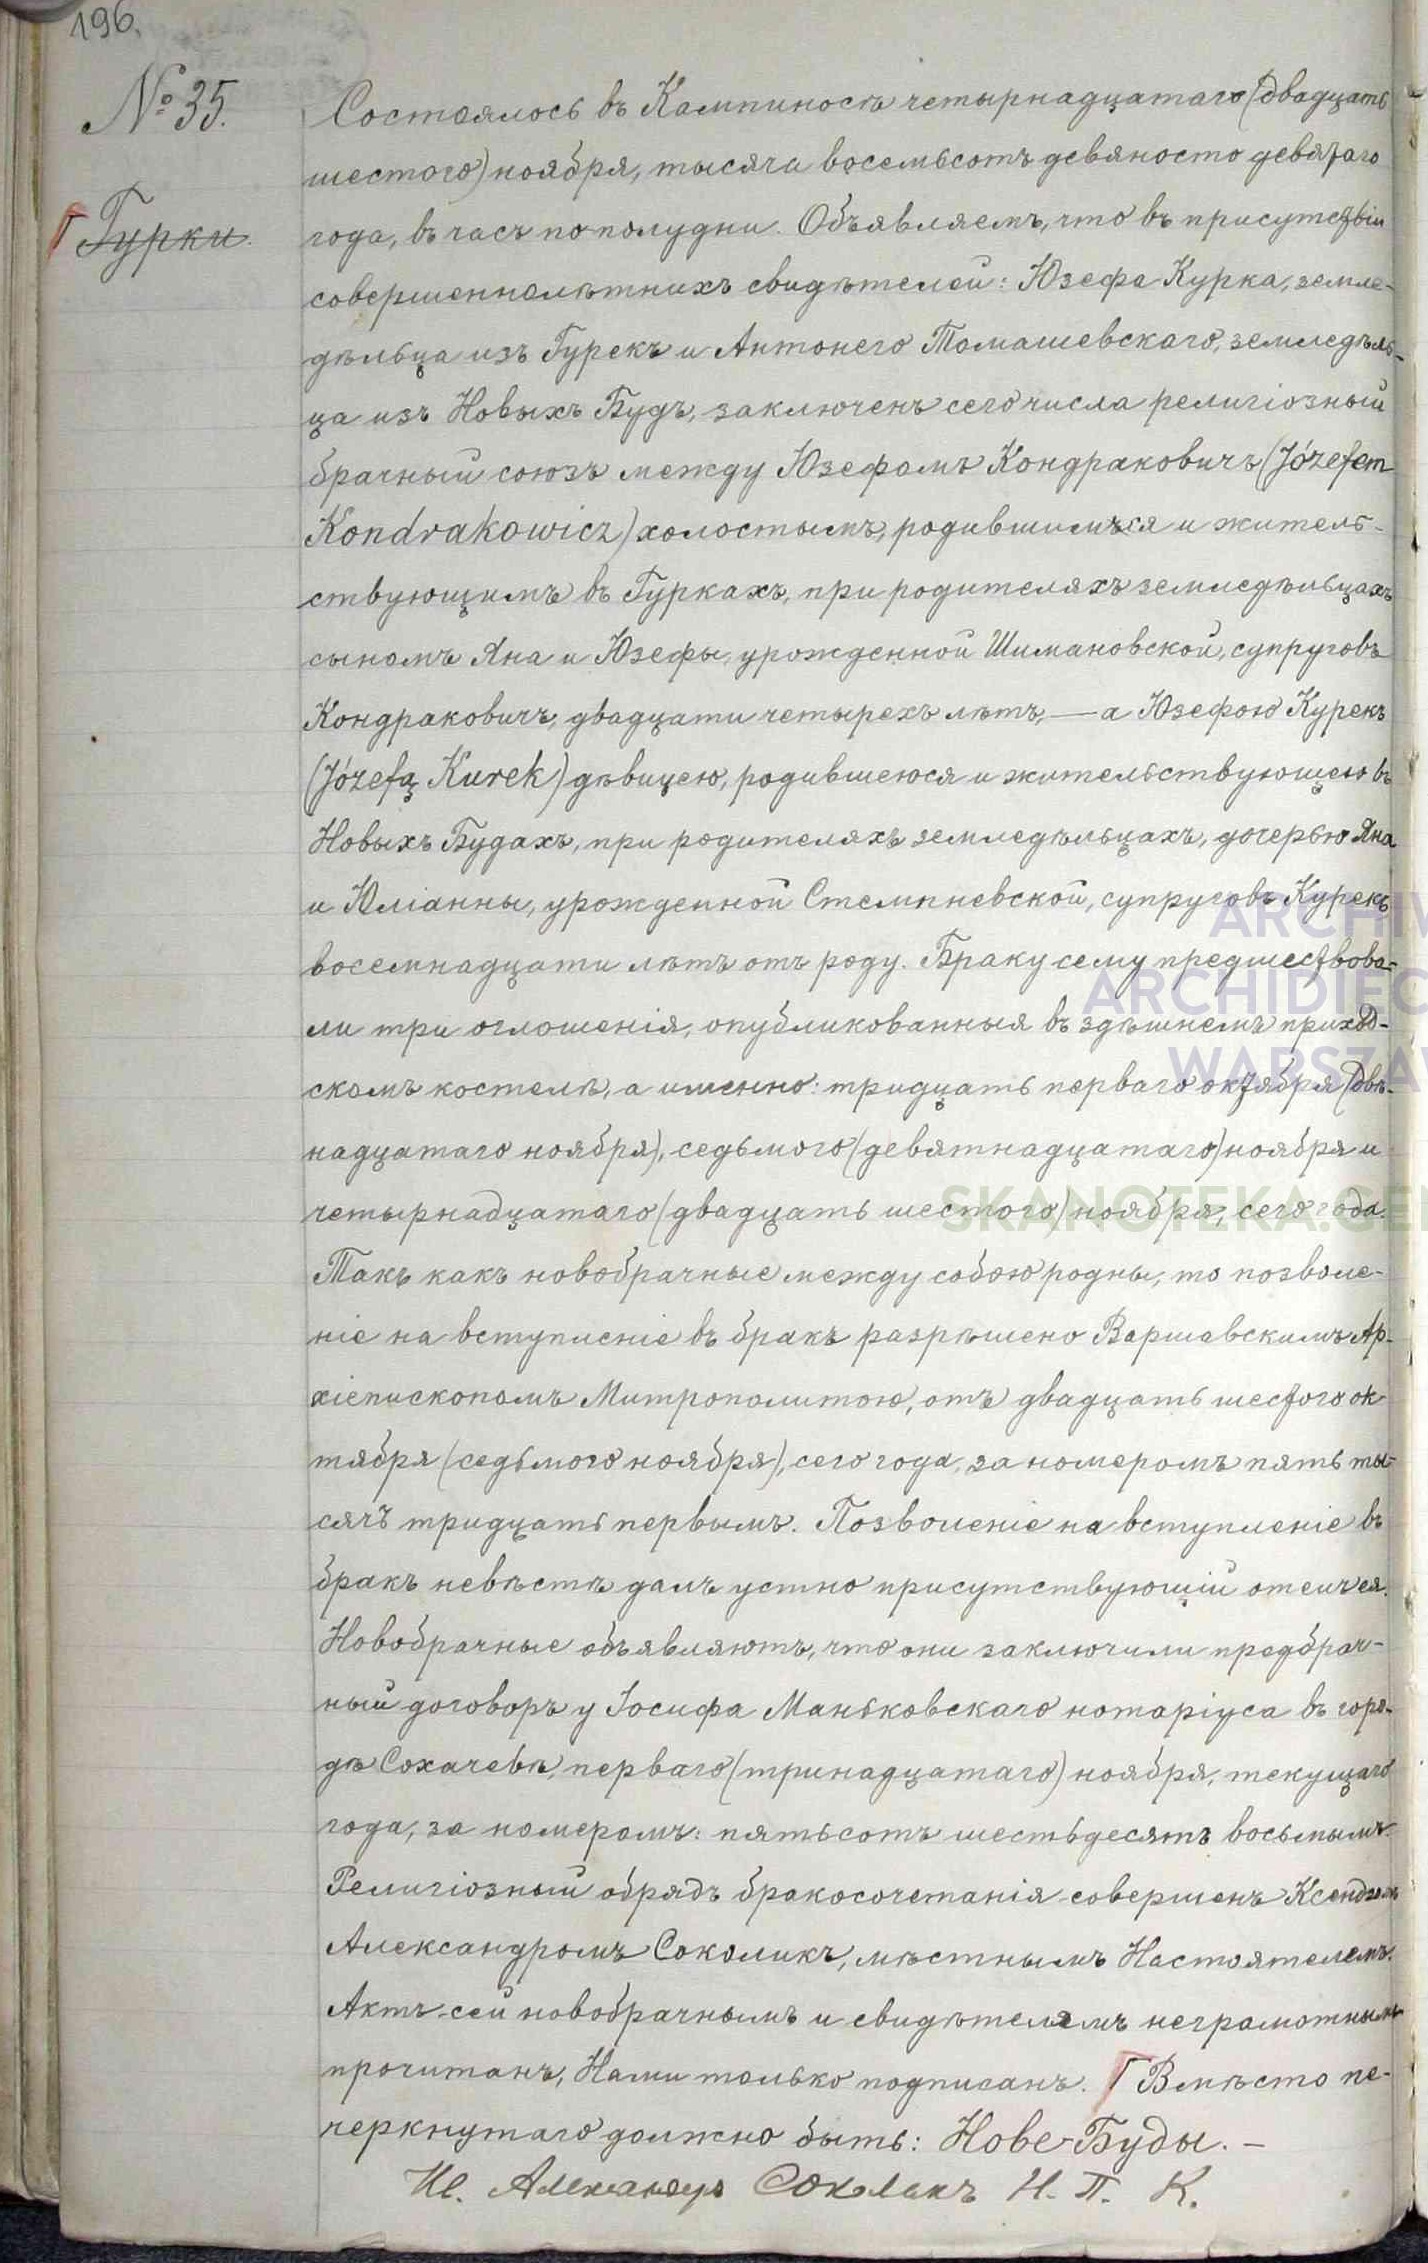 196.
№ 35.
Гурки.
Состоялось въ Кампиносѣ четырнадцатаго (двадцать
шестого) ноября, тысяча восемьсотъ девяносто девятаго
года, въ часъ по полудни. Объявляемъ, что въ присутствіи
совершеннолѣтнихъ свидѣтелей: Юзефа Курка, земле-
дѣльца изъ Гурекъ и Антонего Томашевскаго, земледѣль-
ца изъ Новыхъ Будъ, заключенъ сего числа религіозный
брачный союзъ между Юзефомъ Кондраковичъ (Józefem
Kondrakowicz) холостымъ, родившимъся и житель-
ствующимъ въ Гуркахъ, при родителяхъ земледѣльцахъ
сыномъ Яна и Юзефы, урожденной Шимановской, супруговъ
Кондраковичъ, двадцати четырехъ лѣтъ, — а Юзефою Курекъ
(Józefą Kurek) дѣвицею, родившеюся и жительствующею въ
Новыхъ Будахъ, при родителяхъ земледѣльцахъ, дочерью Яна
и Юліанны, урожденной Стемпневской, супруговъ Курекъ
восемнадцати лѣтъ отъ роду. Браку сему предшествова-
ли три оглошенія, опубликованныя въ здѣшнемъ приход-
скомъ костелѣ, а именно: тридцать перваго октября (двѣ-
надцатаго ноября), седьмого (девятнадцатаго) ноября и
четырнадцатаго (двадцать шестого) ноября, сего года.
Такъ какъ новобрачные между собою родны, то позволе-
ніе на вступленіе въ бракъ разрѣшено Варшавскимъ Ар-
хіепископомъ Митрополитою, отъ двадцать шестого ок-
тября (седьмого ноября), сего года, за номеромъ пять ты-
сячъ тридцать первымъ. Позволеніе на вступленіе въ
бракъ невѣстѣ далъ устно присутствующій отецъ ея.
Новобрачные объявляютъ, что они заключили предбрач-
ный договоръ у Іосифа Маньковскаго нотаріуса въ горо-
дѣ Сохачевѣ, перваго (тринадцатаго) ноября, текущаго
года, за номеромъ: пятьсотъ шестьдесятъ восьмымъ.
Религіозный обрядъ бракосочетанія совершенъ Ксендзомъ
Александромъ Соколикъ, мѣстнымъ Настоятелемъ.
Актъ сей новобрачнымъ и свидѣтелямъ неграмотнымъ
прочитанъ, Нами только подписанъ. Г Вмѣсто пе-
черкнутаго должно быть: Нове-Буды. —
Кс. Александръ Соколикъ Н. П. К.
ARCHIW
ARCHIDIEC
WARSZAW
SKANOTEKA.GEN